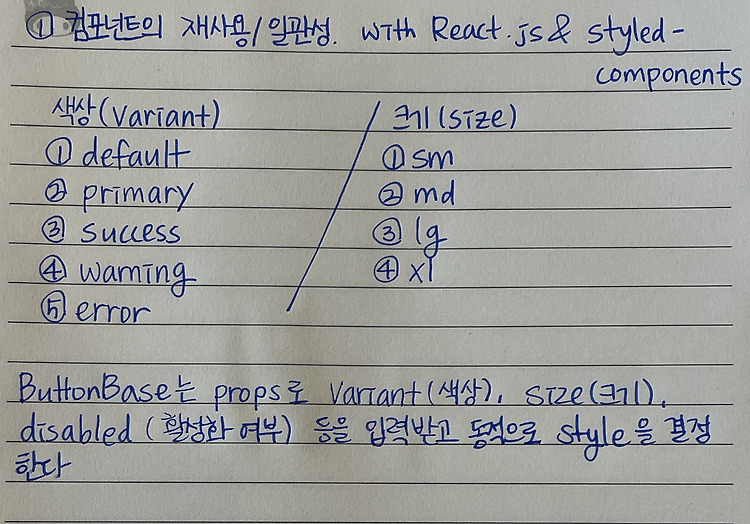 ① 컴포넌트의 재사용/일관성. with React.js & styled-
components
색상(Variant) / 크기(size)
① default ① sm
② primary ② md
③ success ③ lg
④ warning ④ xl
⑤ error
ButtonBase는 props로 Variant(색상), size(크기),
disabled (활성화 여부) 등을 입력받고 동적으로 style을 결정
한다